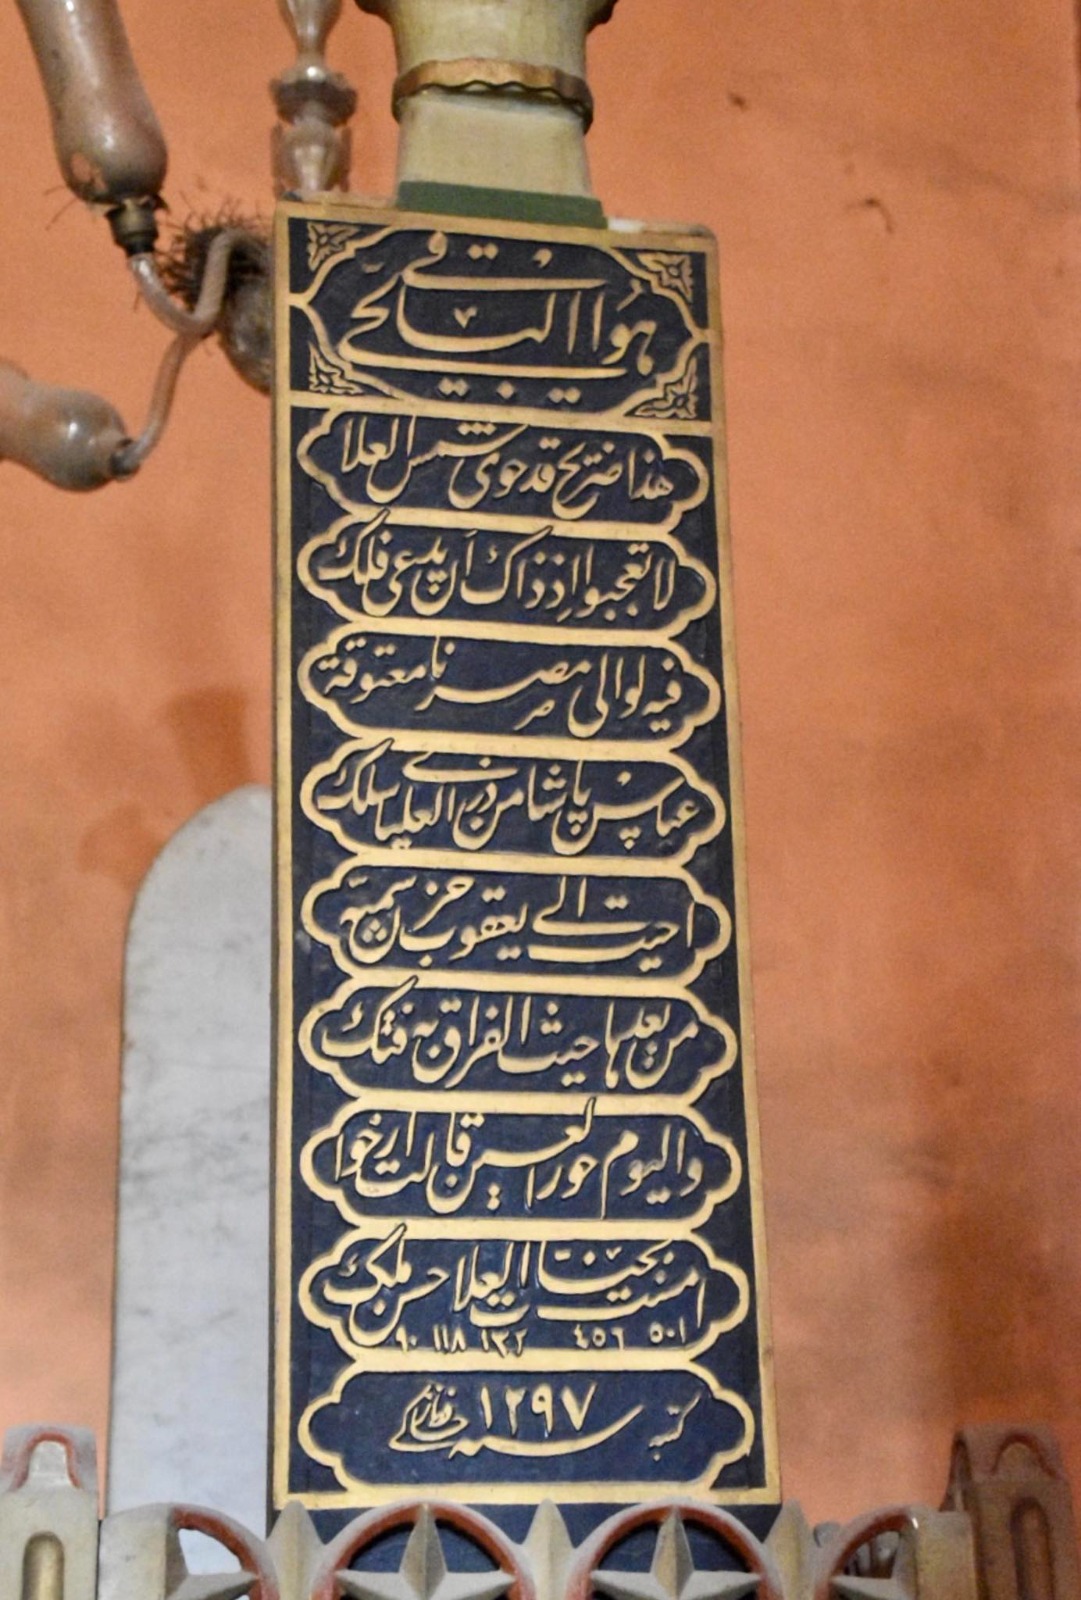 هو الحي الباقي
هذا ضريح قد حوى شمس العلا
لا تعجبوا اذ ذاك أن يدعى فلك
فيه لوالى مصرنا معتوقة
عباس پاشا من ذرى العليا سلك
احيت الى يعقوب حزن سميه
من بعلها حيث الفراق به فتك
واليوم حور العين قالت ارخوا
امست بحينات العلا حسن ملك
٥٠١ ٤٥٦ ١٣٢ ١١٨ ٩٠
كتبه سنه ١٢٩٧